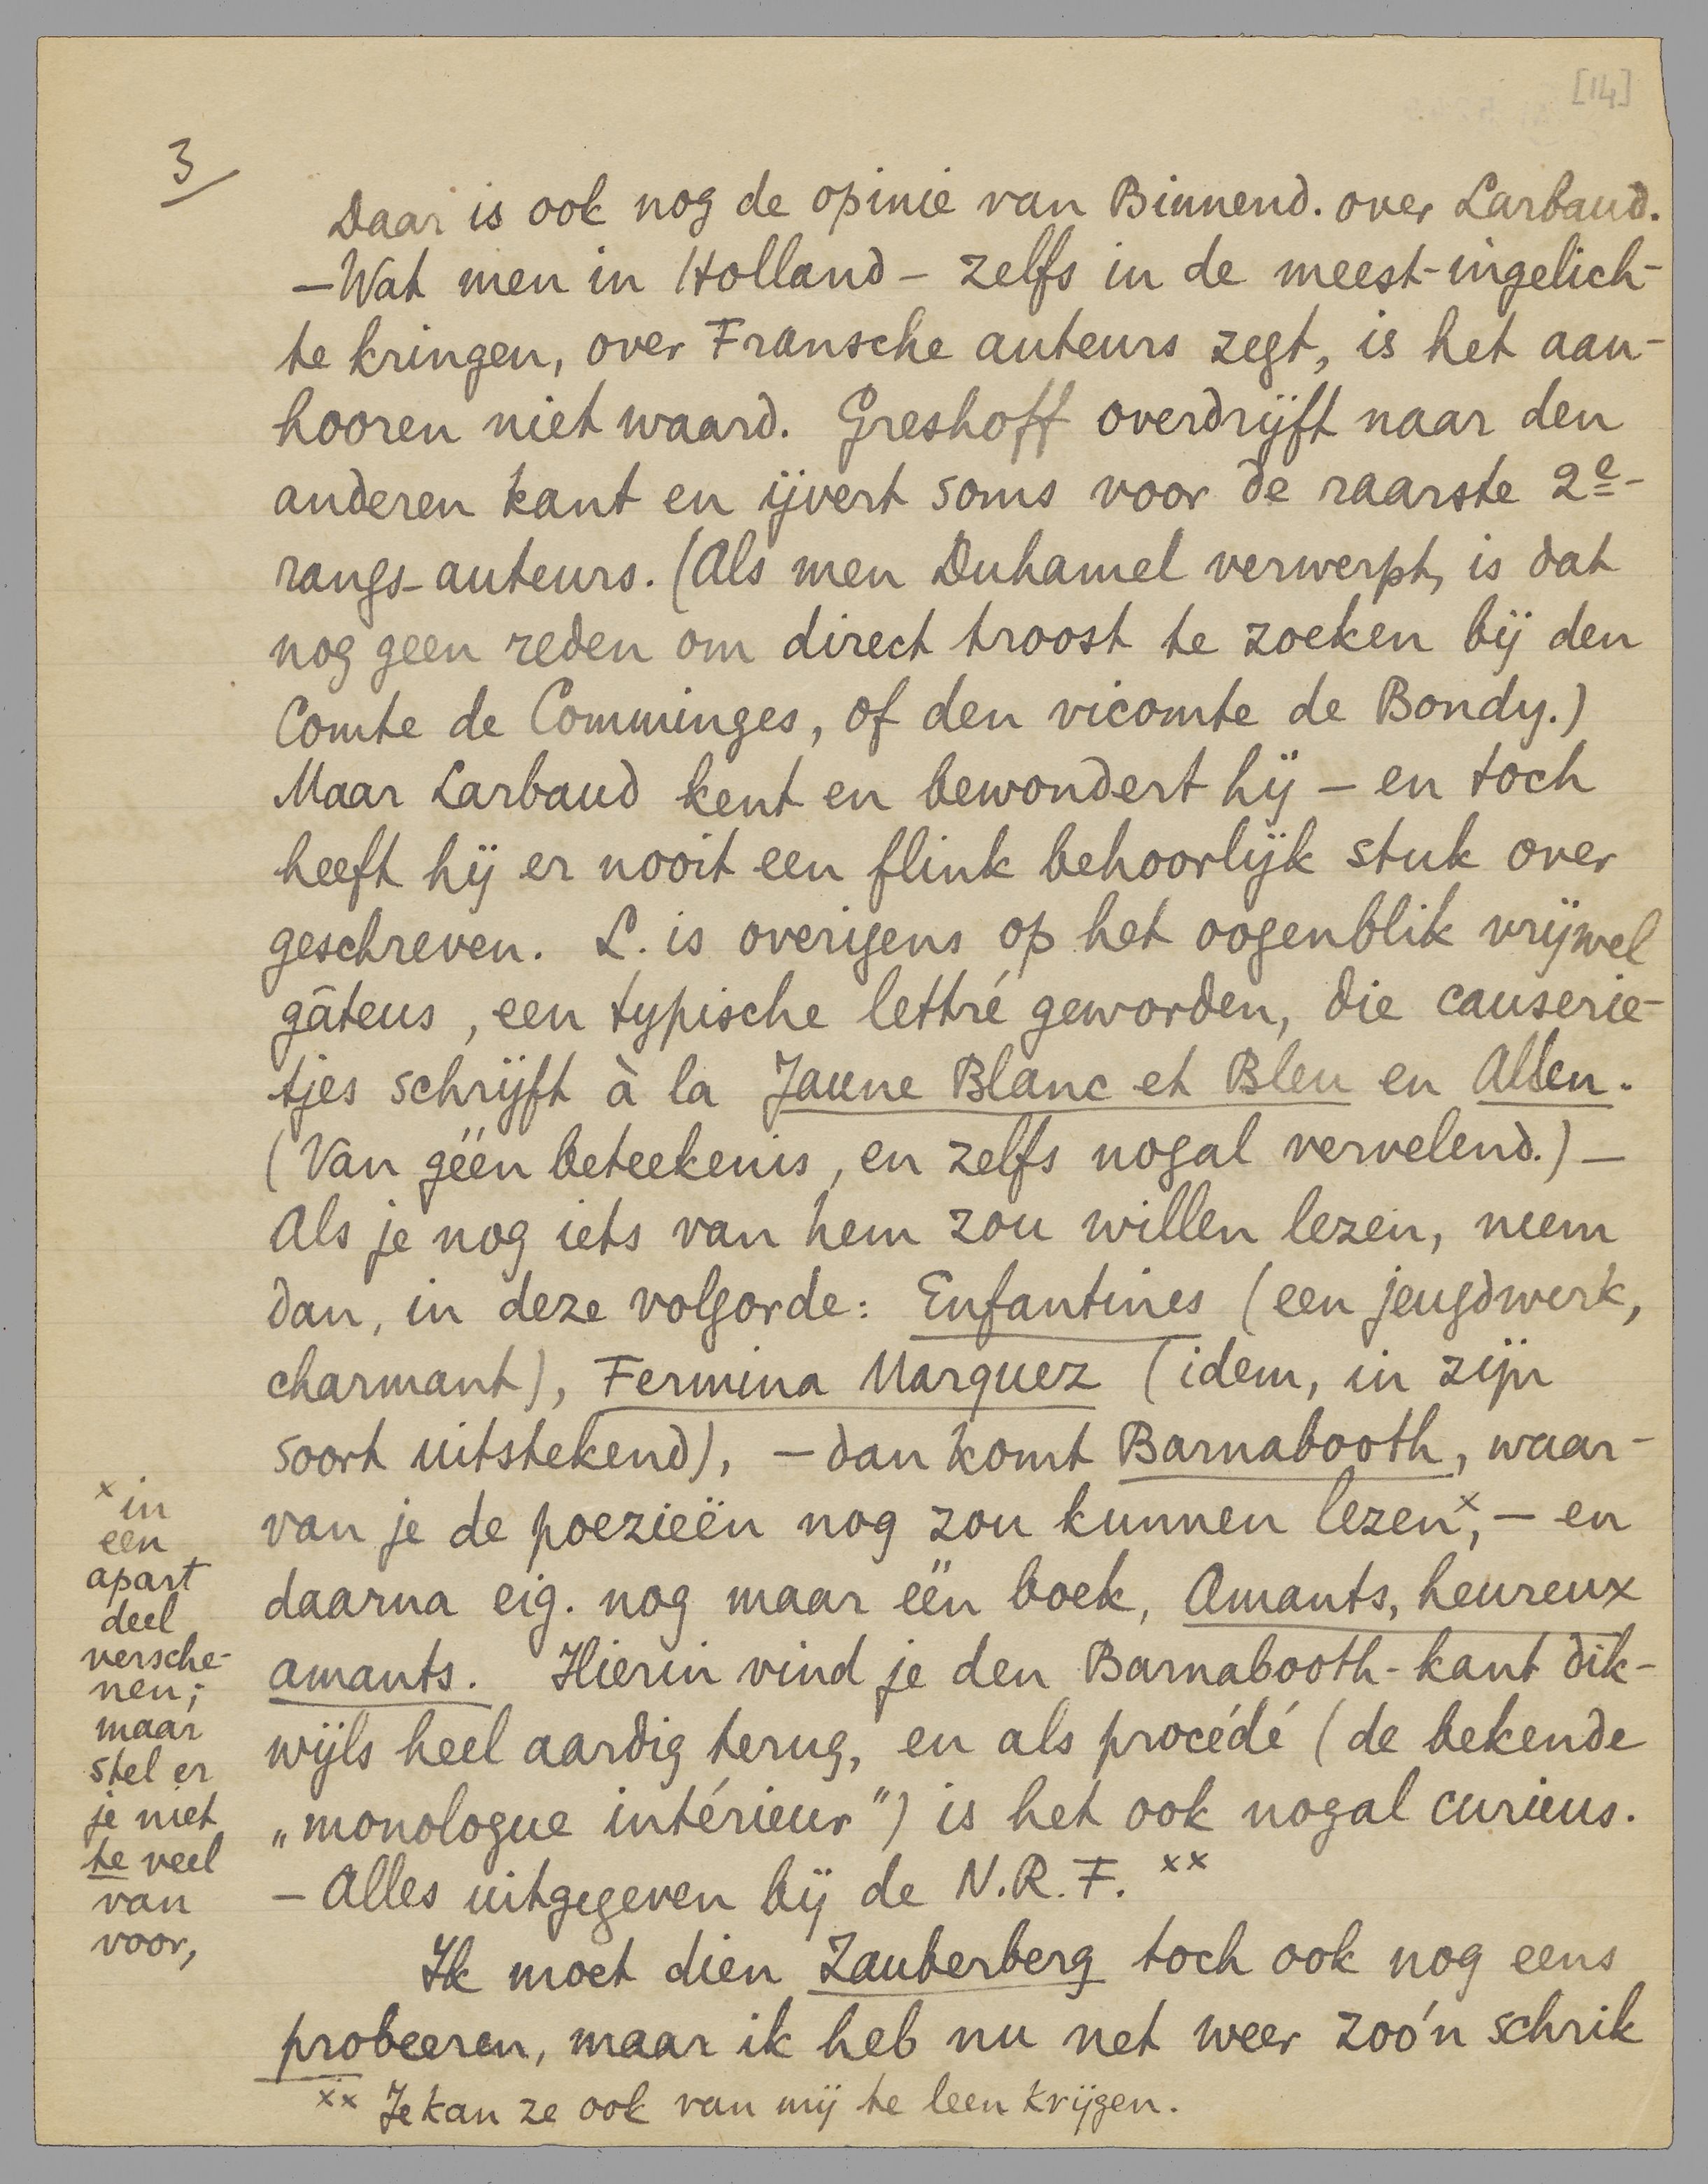 [14]
3
Daar is ook nog de opinie van Binnend. over Larbaud.
—Wat men in Holland — zelfs in de meest-ingelich-
te kringen, over Fransche auteurs zegt, is het aan-
hooren niet waard. Greshoff overdrijft naar den
anderen kant en ijvert soms voor de raarste 2e-
rangs-auteurs. (Als men Duhamel verwerpt, is dat
nog geen reden om direct troost te zoeken bij den
Comte de Comminges, of den vicomte de Bondy.)
Maar Larbaud kent en bewondert hij — en toch
heeft hij er nooit een flink behoorlijk stuk over
geschreven. L. is overigens op het oogenblik vrijwel
gâteus, een typische lettré geworden, die causerie-
tjes schrijft à la Jaune Blanc et Bleu en Allen.
(Van géén beteekenis, en zelfs nogal vervelend.) —
Als je nog iets van hem zou willen lezen, neem
dan, in deze volgorde: Enfantines (een jeugdwerk,
charmant), Fermina Marquez (idem, in zijn
soort uitstekend), — dan komt Barnabooth, waar-
van je de poezieën nog zou kunnen lezen x, — en
daarna eig. nog maar één boek, Amants, heureux
amants. Hierin vind je den Barnabooth-kant dik-
wijls heel aardig terug, en als procédé (de bekende
„monologue intérieur") is het ook nogal curieus.
— Alles uitgegeven bij de N.R.F. xx
Ik moet dien Zauberberg toch ook nog eens
probeeren, maar ik heb nu net weer zoo'n schrik
xx Je kan ze ook van mij te leen krijgen.
x in
een
apart
deel
versche-
nen;
maar
stel er
je niet
te veel
van
voor,